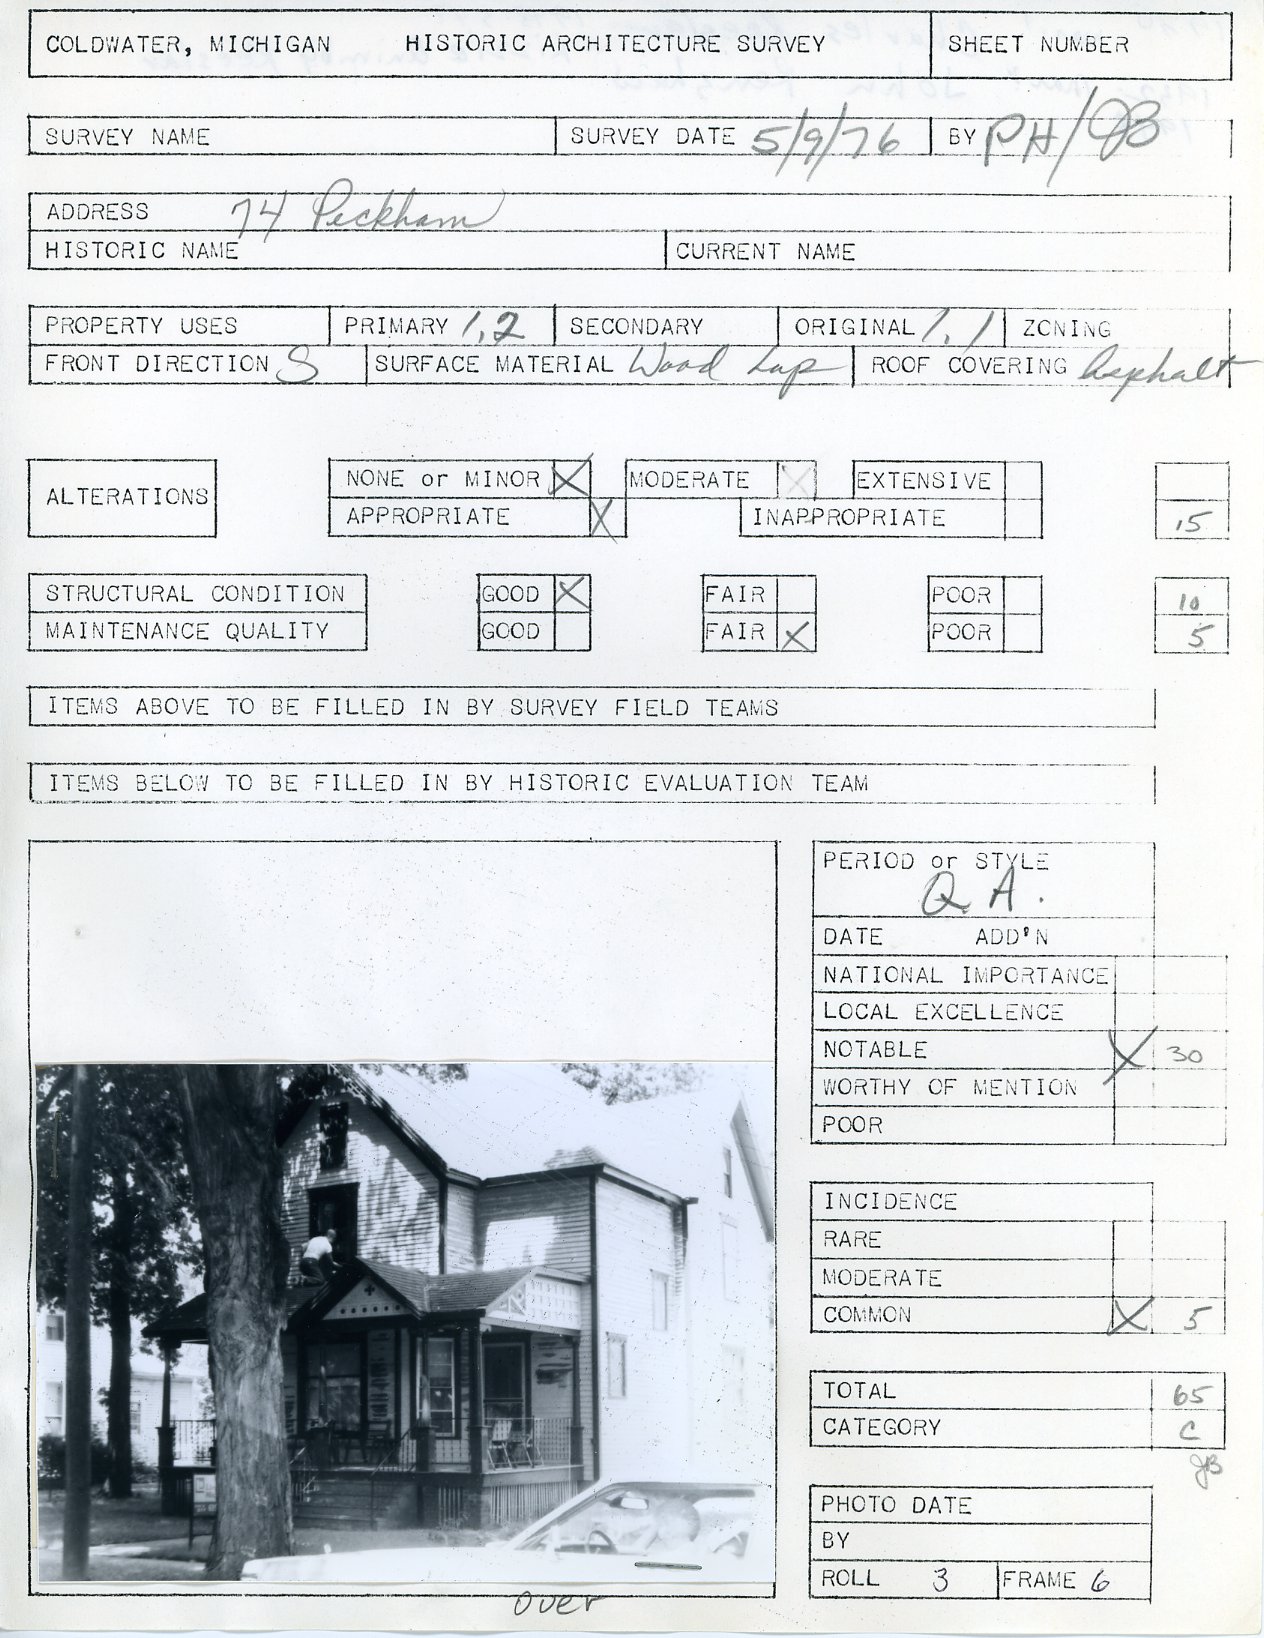 COLDWATER, MICHIGAN HISTORIC ARCHITECTURE SURVEY SHEET NUMBER
SURVEY NAME SURVEY DATE 5/9/76 BY PH/JB
ADDRESS 74 Peckham
HISTORIC NAME CURRENT NAME
PROPERTY USES PRIMARY 1,2 SECONDARY ORIGINAL 1,1 ZONING
FRONT DIRECTION S SURFACE MATERIAL Wood Lap ROOF COVERING Asphalt
ALTERATIONS NONE or MINOR X MODERATE X EXTENSIVE
APPROPRIATE X INAPPROPRIATE 15
STRUCTURAL CONDITION GOOD X FAIR POOR 10
MAINTENANCE QUALITY GOOD FAIR X POOR 5
ITEMS ABOVE TO BE FILLED IN BY SURVEY FIELD TEAMS
ITEMS BELOW TO BE FILLED IN BY HISTORIC EVALUATION TEAM
PERIOD or STYLE
Q.A.
DATE ADD'N
NATIONAL IMPORTANCE
LOCAL EXCELLENCE
NOTABLE X 30
WORTHY OF MENTION
POOR
INCIDENCE
RARE
MODERATE
COMMON X 5
TOTAL 65
CATEGORY C
JB
PHOTO DATE
BY
ROLL 3 FRAME 6
over